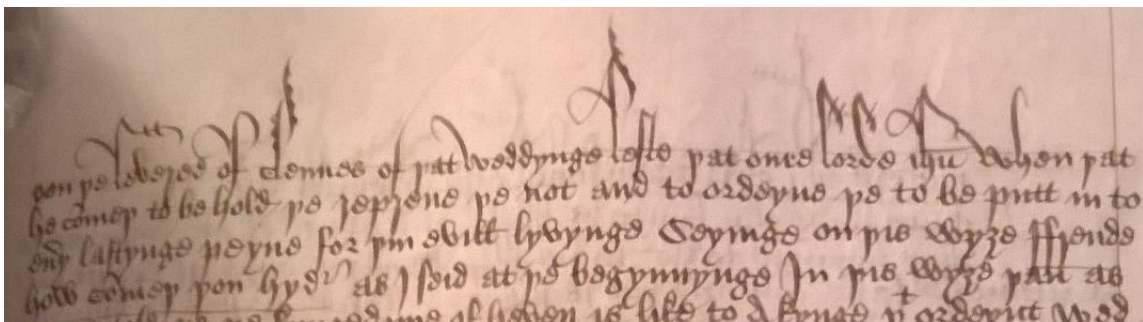 on þe of clennes of þat weddynge leste þat oure lorde ihu When þat
he comeþ to be hold þe repreue þe not and to ordeyne þe to be putt in to
lastynge peyne for þin evill lyvynge Seyinge on þis wyze ffrende
how comeþ þou hyder as I seid at þe begynnynge In þis wyze þan as
of heven is like to A kynge þt Wed